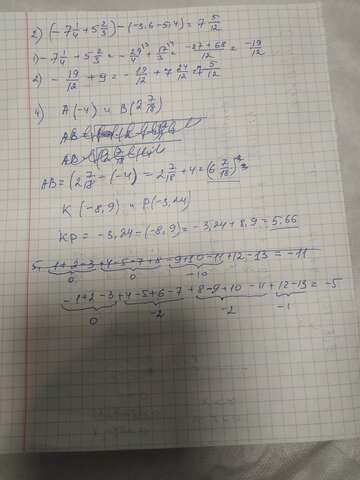 2) (-7 1/4 + 5 2/3) - (-3,6 - 5,4) = 7 5/12
1) -7 1/4 + 5 2/3 = -29/4 + 17/3 = -87+68/12 = -19/12
2) -19/12 + 9 = -19/12 + 7 24/12 = 7 5/12
4) A(-4) и B(2 7/18)
AB = (2 7/18 - (-4) = 2 7/18 + 4 = (6 7/18)
K (-8,9) и P(-3,24)
KP = -3,24 - (-8,9) = -3,24 + 8,9 = 5,66
5. 1+2-3+4-5-7+8-9+10-11+12-13 = -11
0 0 -10
-1+2-3+4-5+6-7+8-9+10-11+12-13 = -5
0 -2 -2 -1